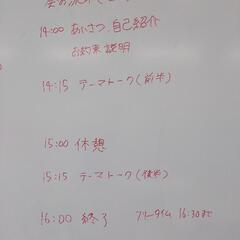 14:00 あいさつ、自己紹介
お約束説明
14:15 テーマトーク(前半)
15:00 休憩
15:15 テーマトーク(後半)
16:00 終了 フリータイム 16:30まで